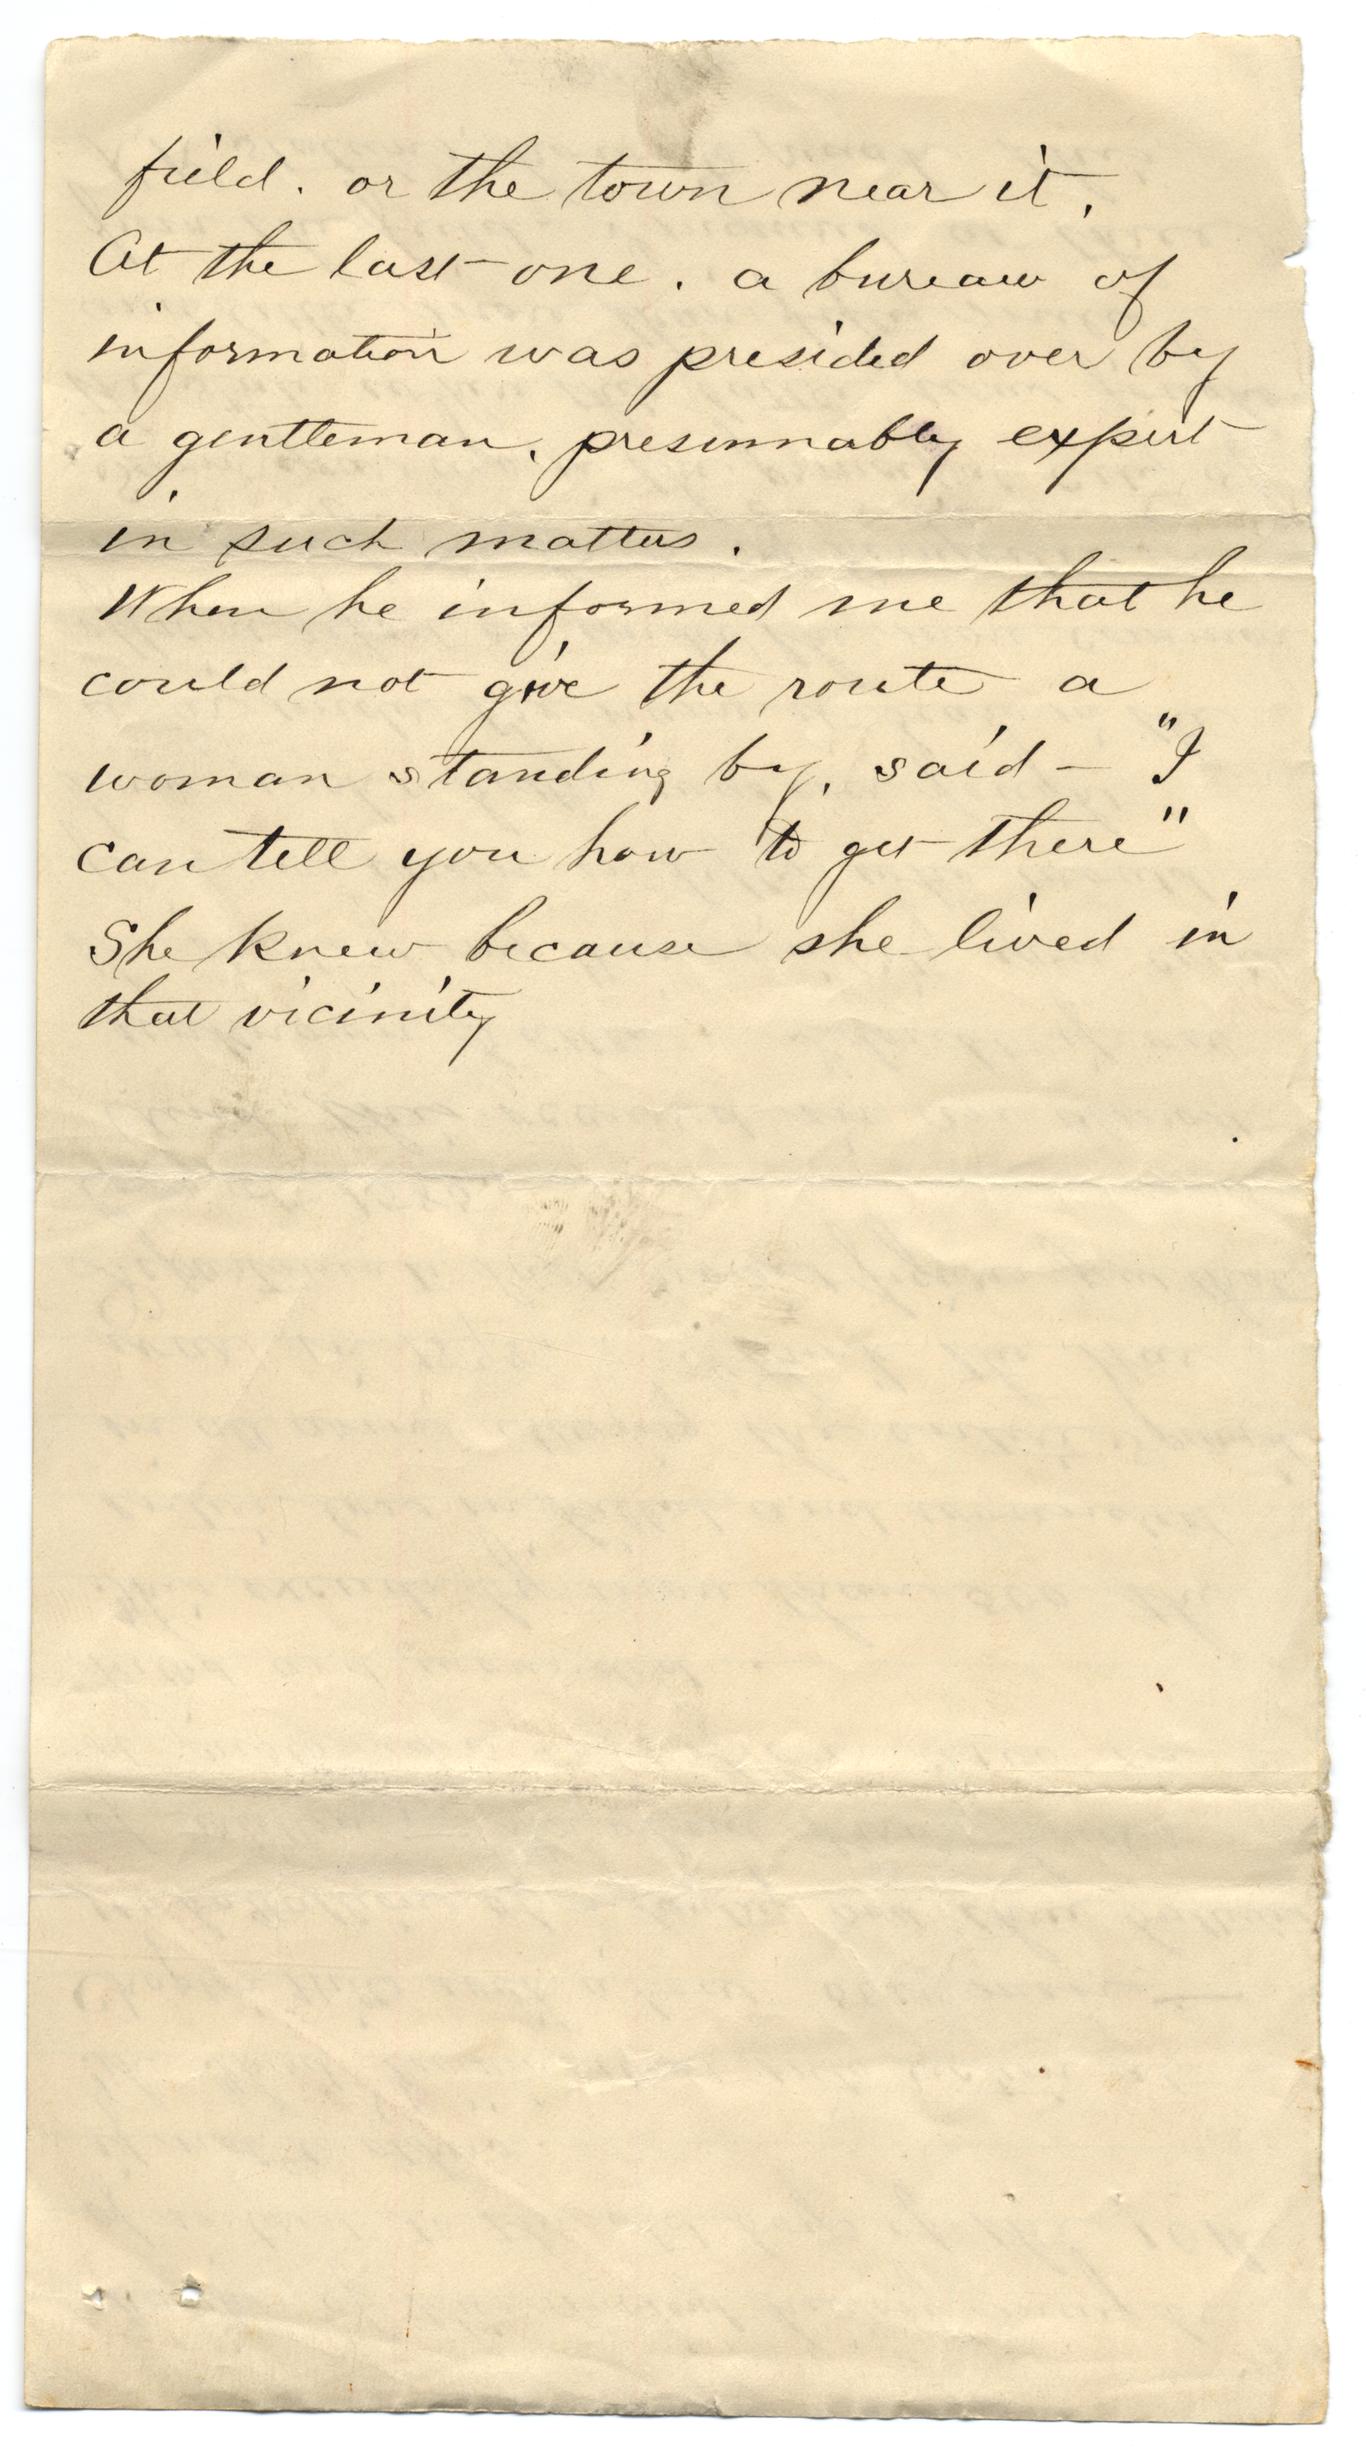 field. or the town near it.
At the last one. a bureau of
information was presided over by
a gentleman, presumably expert
in such matters.
When he informed me that he
could not give the route a
woman standing by, said - "I
can tell you how to get there"
She knew because she lived in
that vicinity